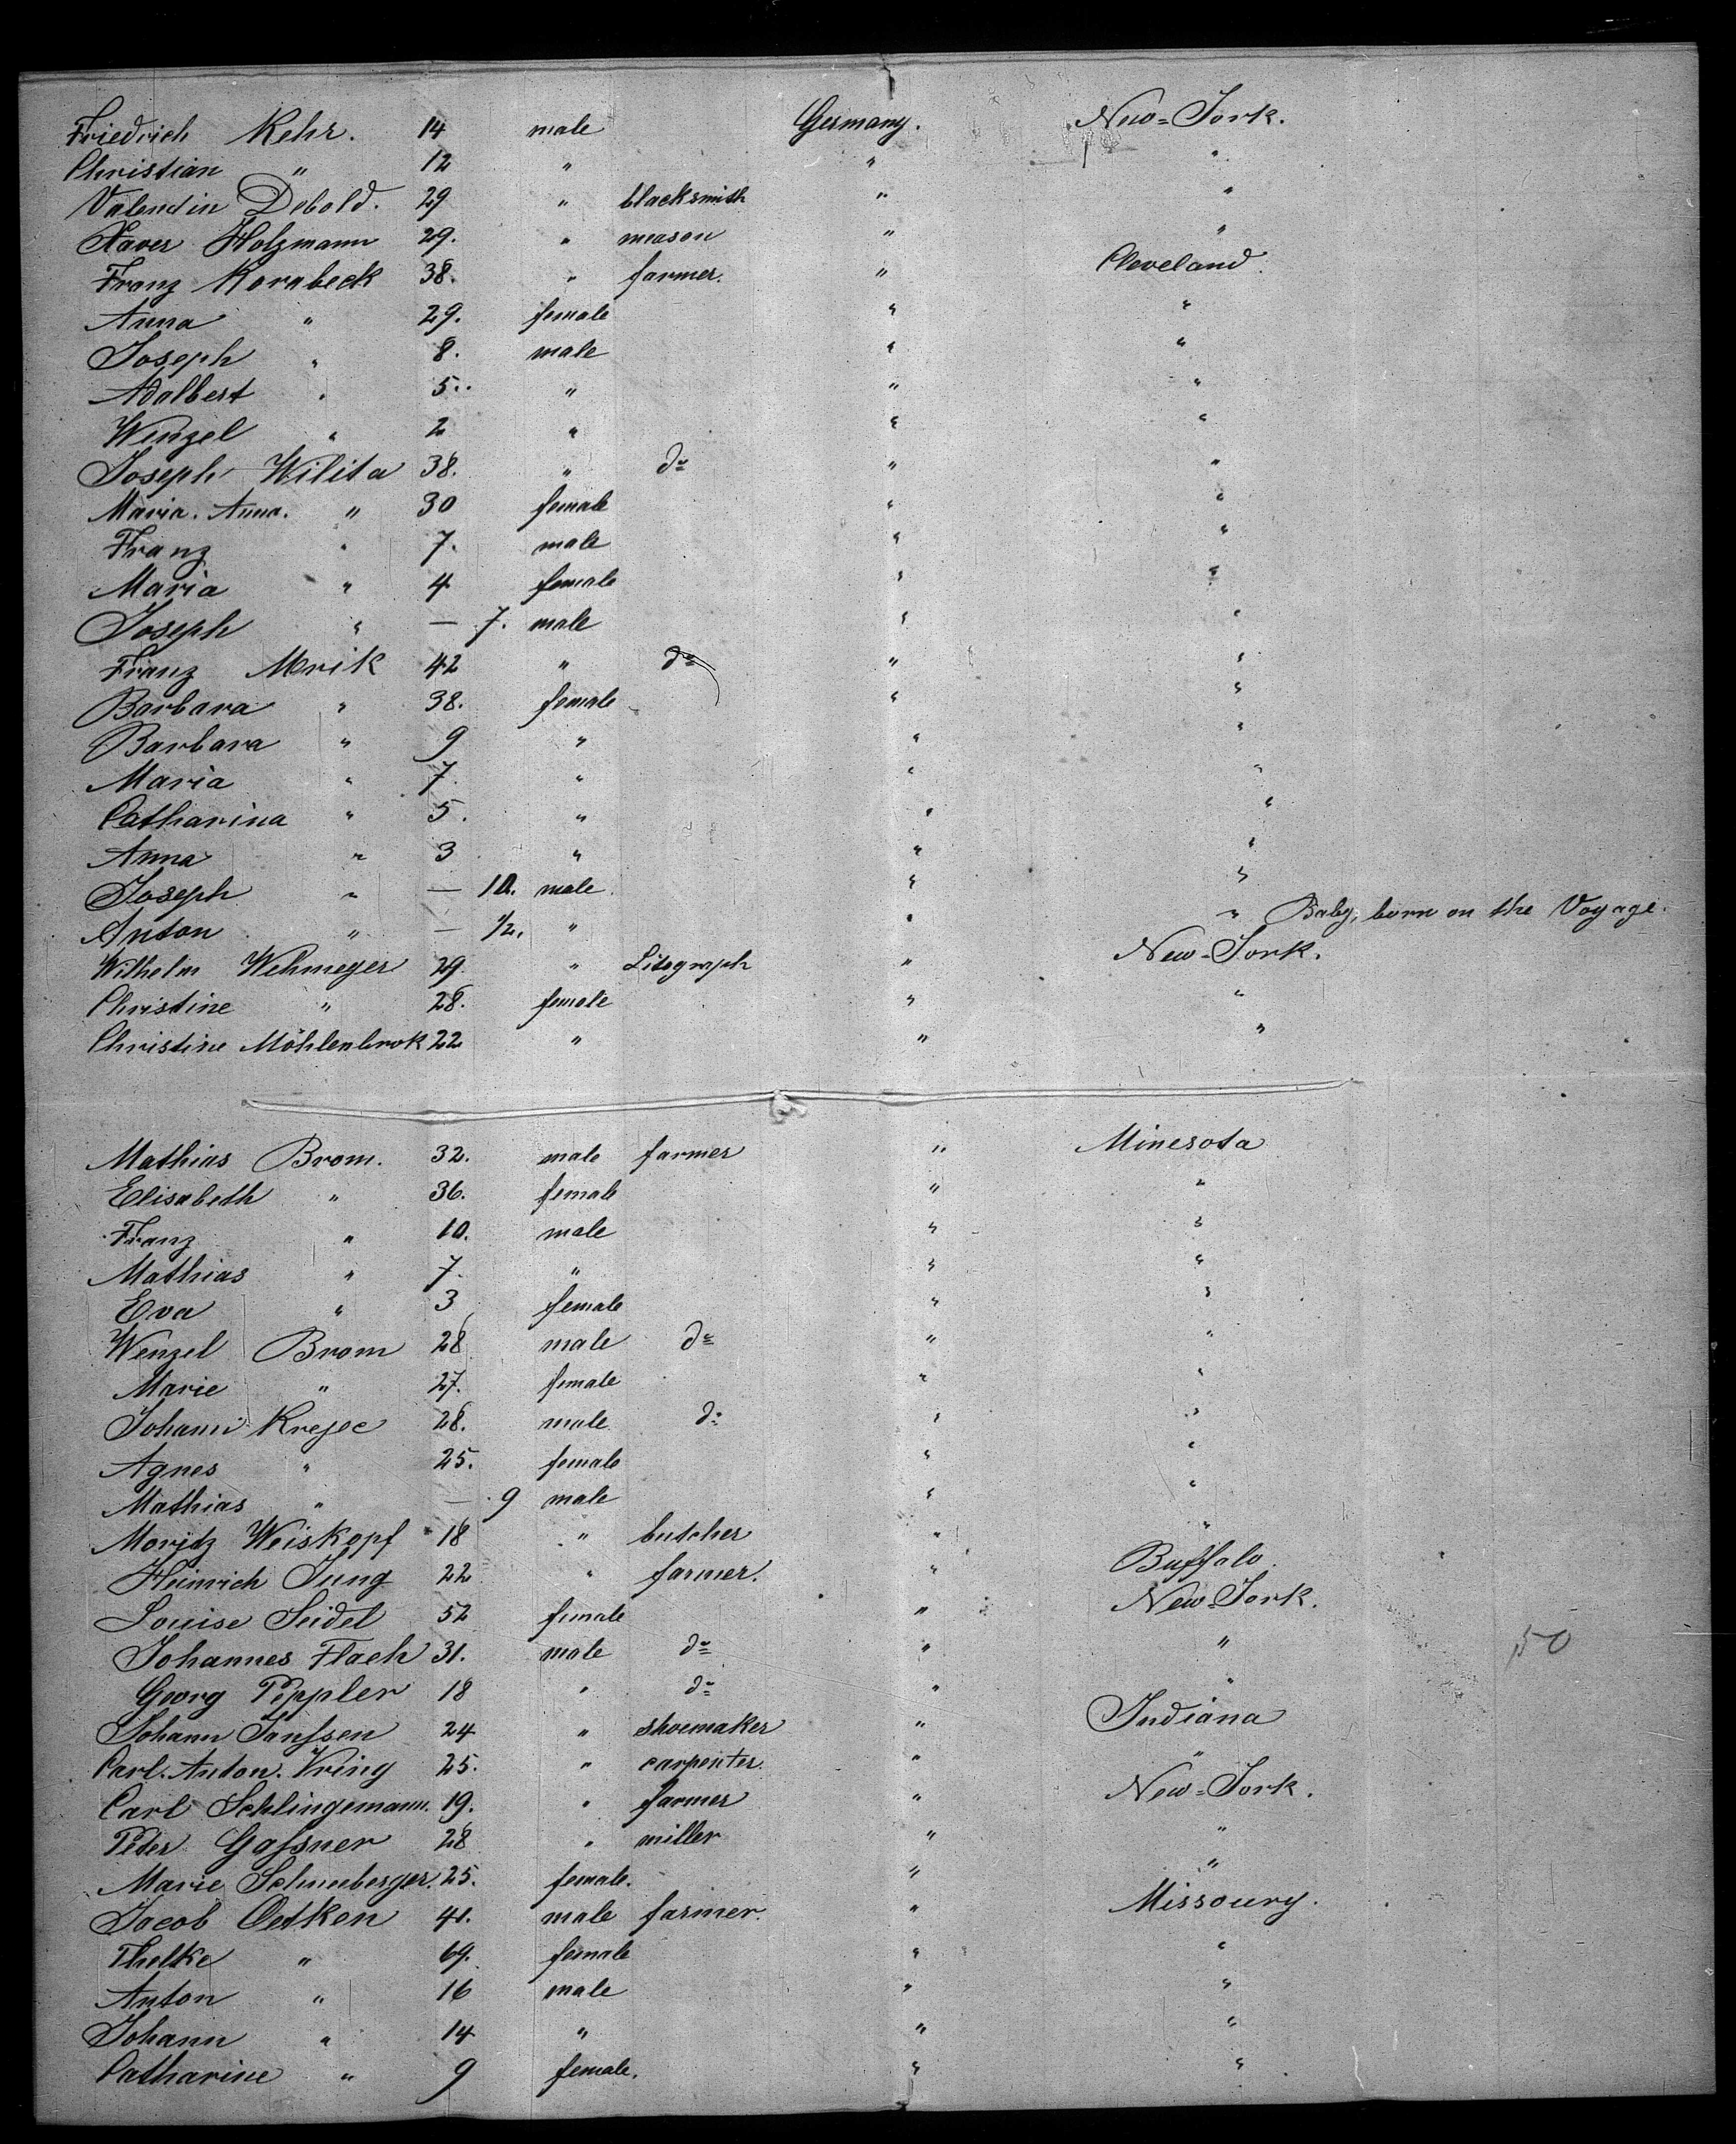 Friedrich Kehr. 14 male Germany. New-York.
Christian " 12 " " "
Valentin Debold. 29 " blacksmith " "
Xaver Holzmann 29. " meason " "
Franz Kornbeck 38. " farmer. " Cleveland.
Anna " 29. female " "
Joseph " 8. male " "
Adalbert " 5. " " "
Wenzel " 2 " " "
Joseph Wilita 38. " do " "
Maria. Anna. " 30 female " "
Franz " 7. male " "
Maria " 4 female " "
Joseph " — 7. male " "
Franz Mrik 42 " do " "
Barbara " 38. female " "
Barbara " 9 " " "
Maria " 7. " " "
Catharina " 5. " " "
Anna " 3 " " "
Joseph " — 10. male " "
Anton " — 1/2. " " " Baby, born on the Voyage.
Wilhelm Wehmeyer 29. " Litograph " New-York.
Christine " 28. female " "
Christine Möhlenbrok 22 " " "
Mathias Brom. 32. male farmer " Minesota
Elisabeth " 36. female " "
Franz " 10. male " "
Mathias " 7. " " "
Eva " 3 female " "
Wenzel Brom 28 male do " "
Marie " 27. female " "
Johann Krejec 28. male do " "
Agnes " 25. female " "
Mathias " — 9 male " "
Moritz Weiskopf 18 " butcher " "
Heinrich Jung 22 " farmer. " Buffalo.
Louise Seidel 52 female " New-York.
Johannes Flach 31. male do " "
50
Georg Peppler 18 " do " "
Johann Janssen 24 " shoemaker " Indiana
Carl. Anton. Vring 25. " carpenter. " "
Carl Schlingemann. 19. " farmer " New-York.
Peter Gassner 28 " miller " "
Marie Schneeberger. 25. female. " "
Jacob Oetken 41. male farmer. " Missoury.
Thelke " 69. female " "
Anton " 16 male " "
Johann " 14 " " "
Catharine " 9 female. " "